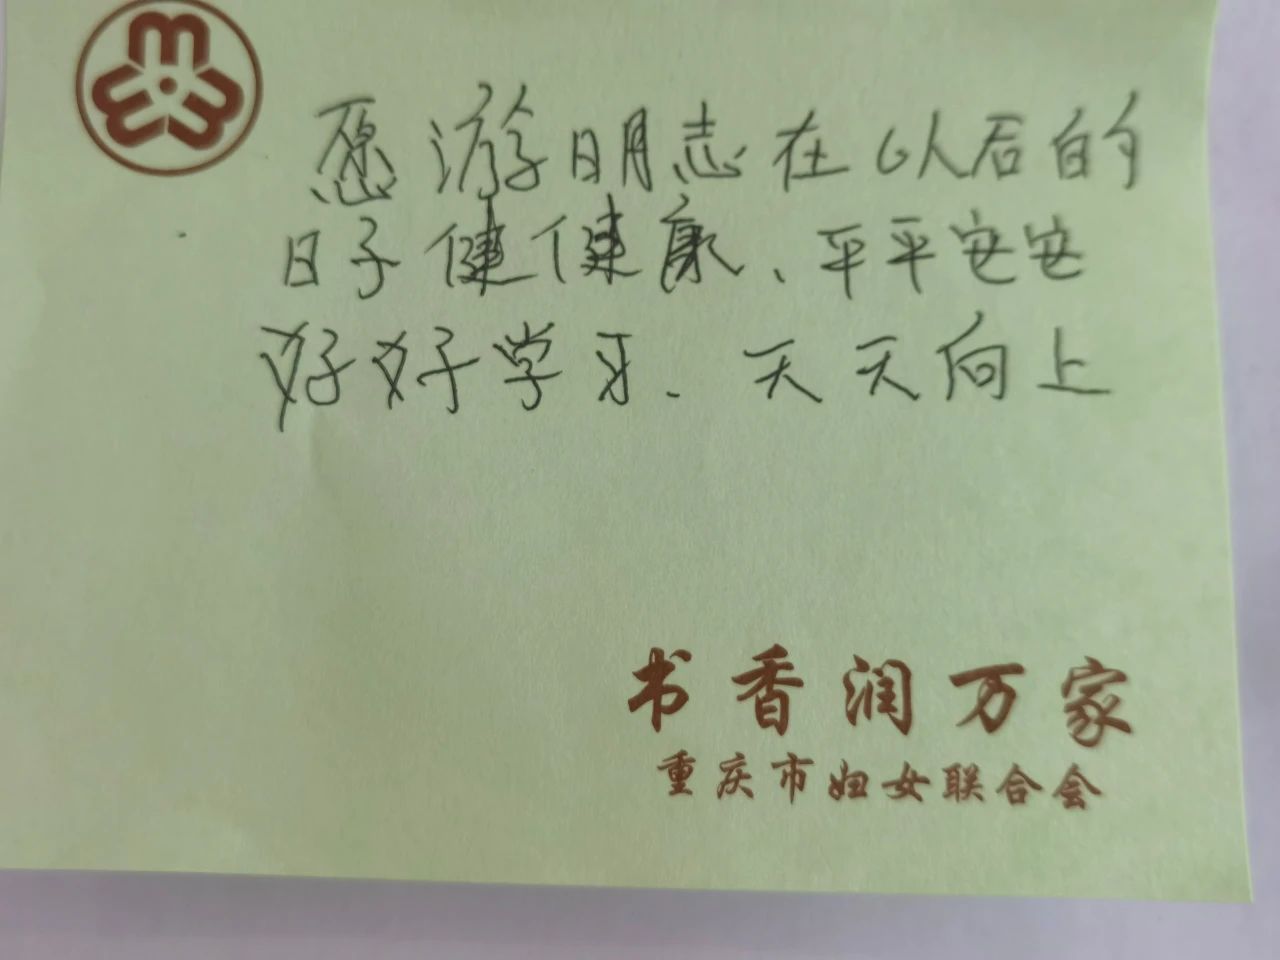 愿游明志在以后的
日子健健康、平平安安
好好学习、天天向上
书香润万家
重庆市妇女联合会